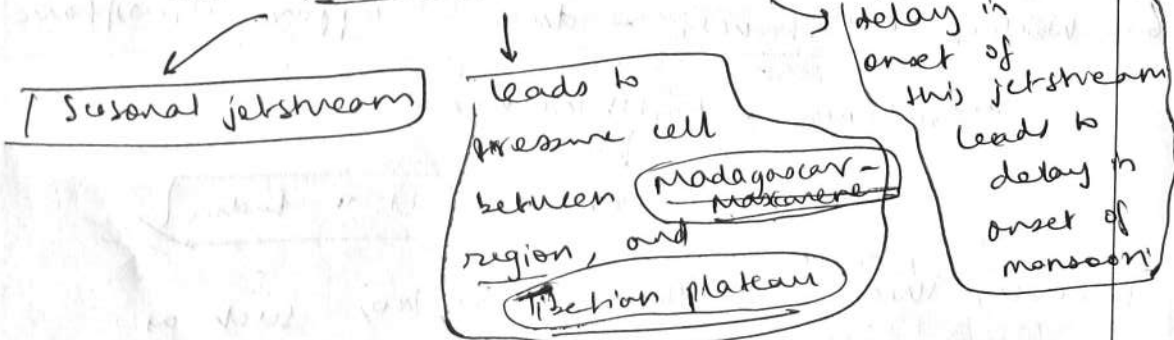 Susonal jetstream
leads to
pressure cell
between Madagascar-
Mascarene
region, and
Tibetian plateau
delay in
onset of
this jetstream
leads to
delay in
onset of
monsoon